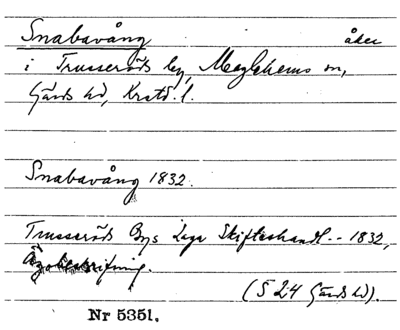 Snabavång åker
i Trusseröds by, Maglehems sn,
Gärds hd, Krstd. l.
Snabavång 1832.
Trusseröds Bys Laga Skifteshandl. - 1832,
Ägobeskrifning.
(S 24 Gärds hd).
Nr 5351.